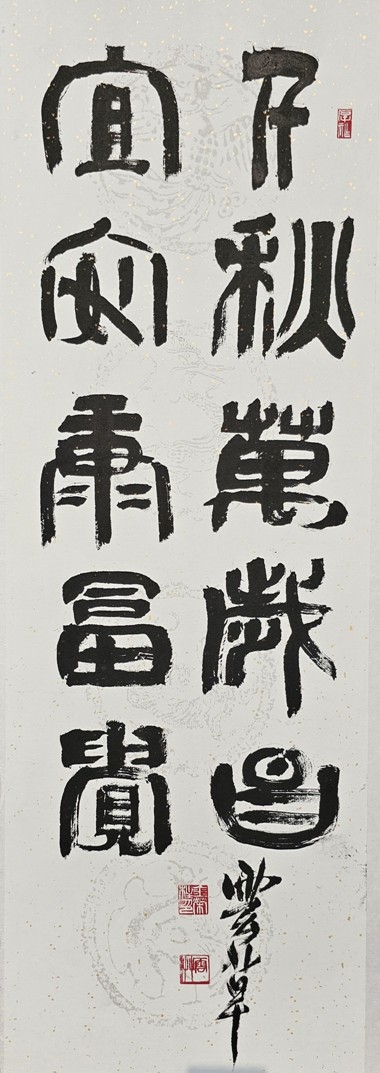 千秋萬歲昌
宜安康富貴